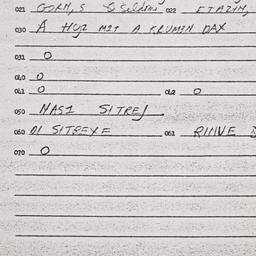 021 GORN, S & Seldow 022 ETAZIN,
030 A HUZ MIT A KRUMEN DAX
031 0
040 0
041 0 042 0
050 NASZ SITREJ
060 DI SITREYE 061 RINVE
070 0